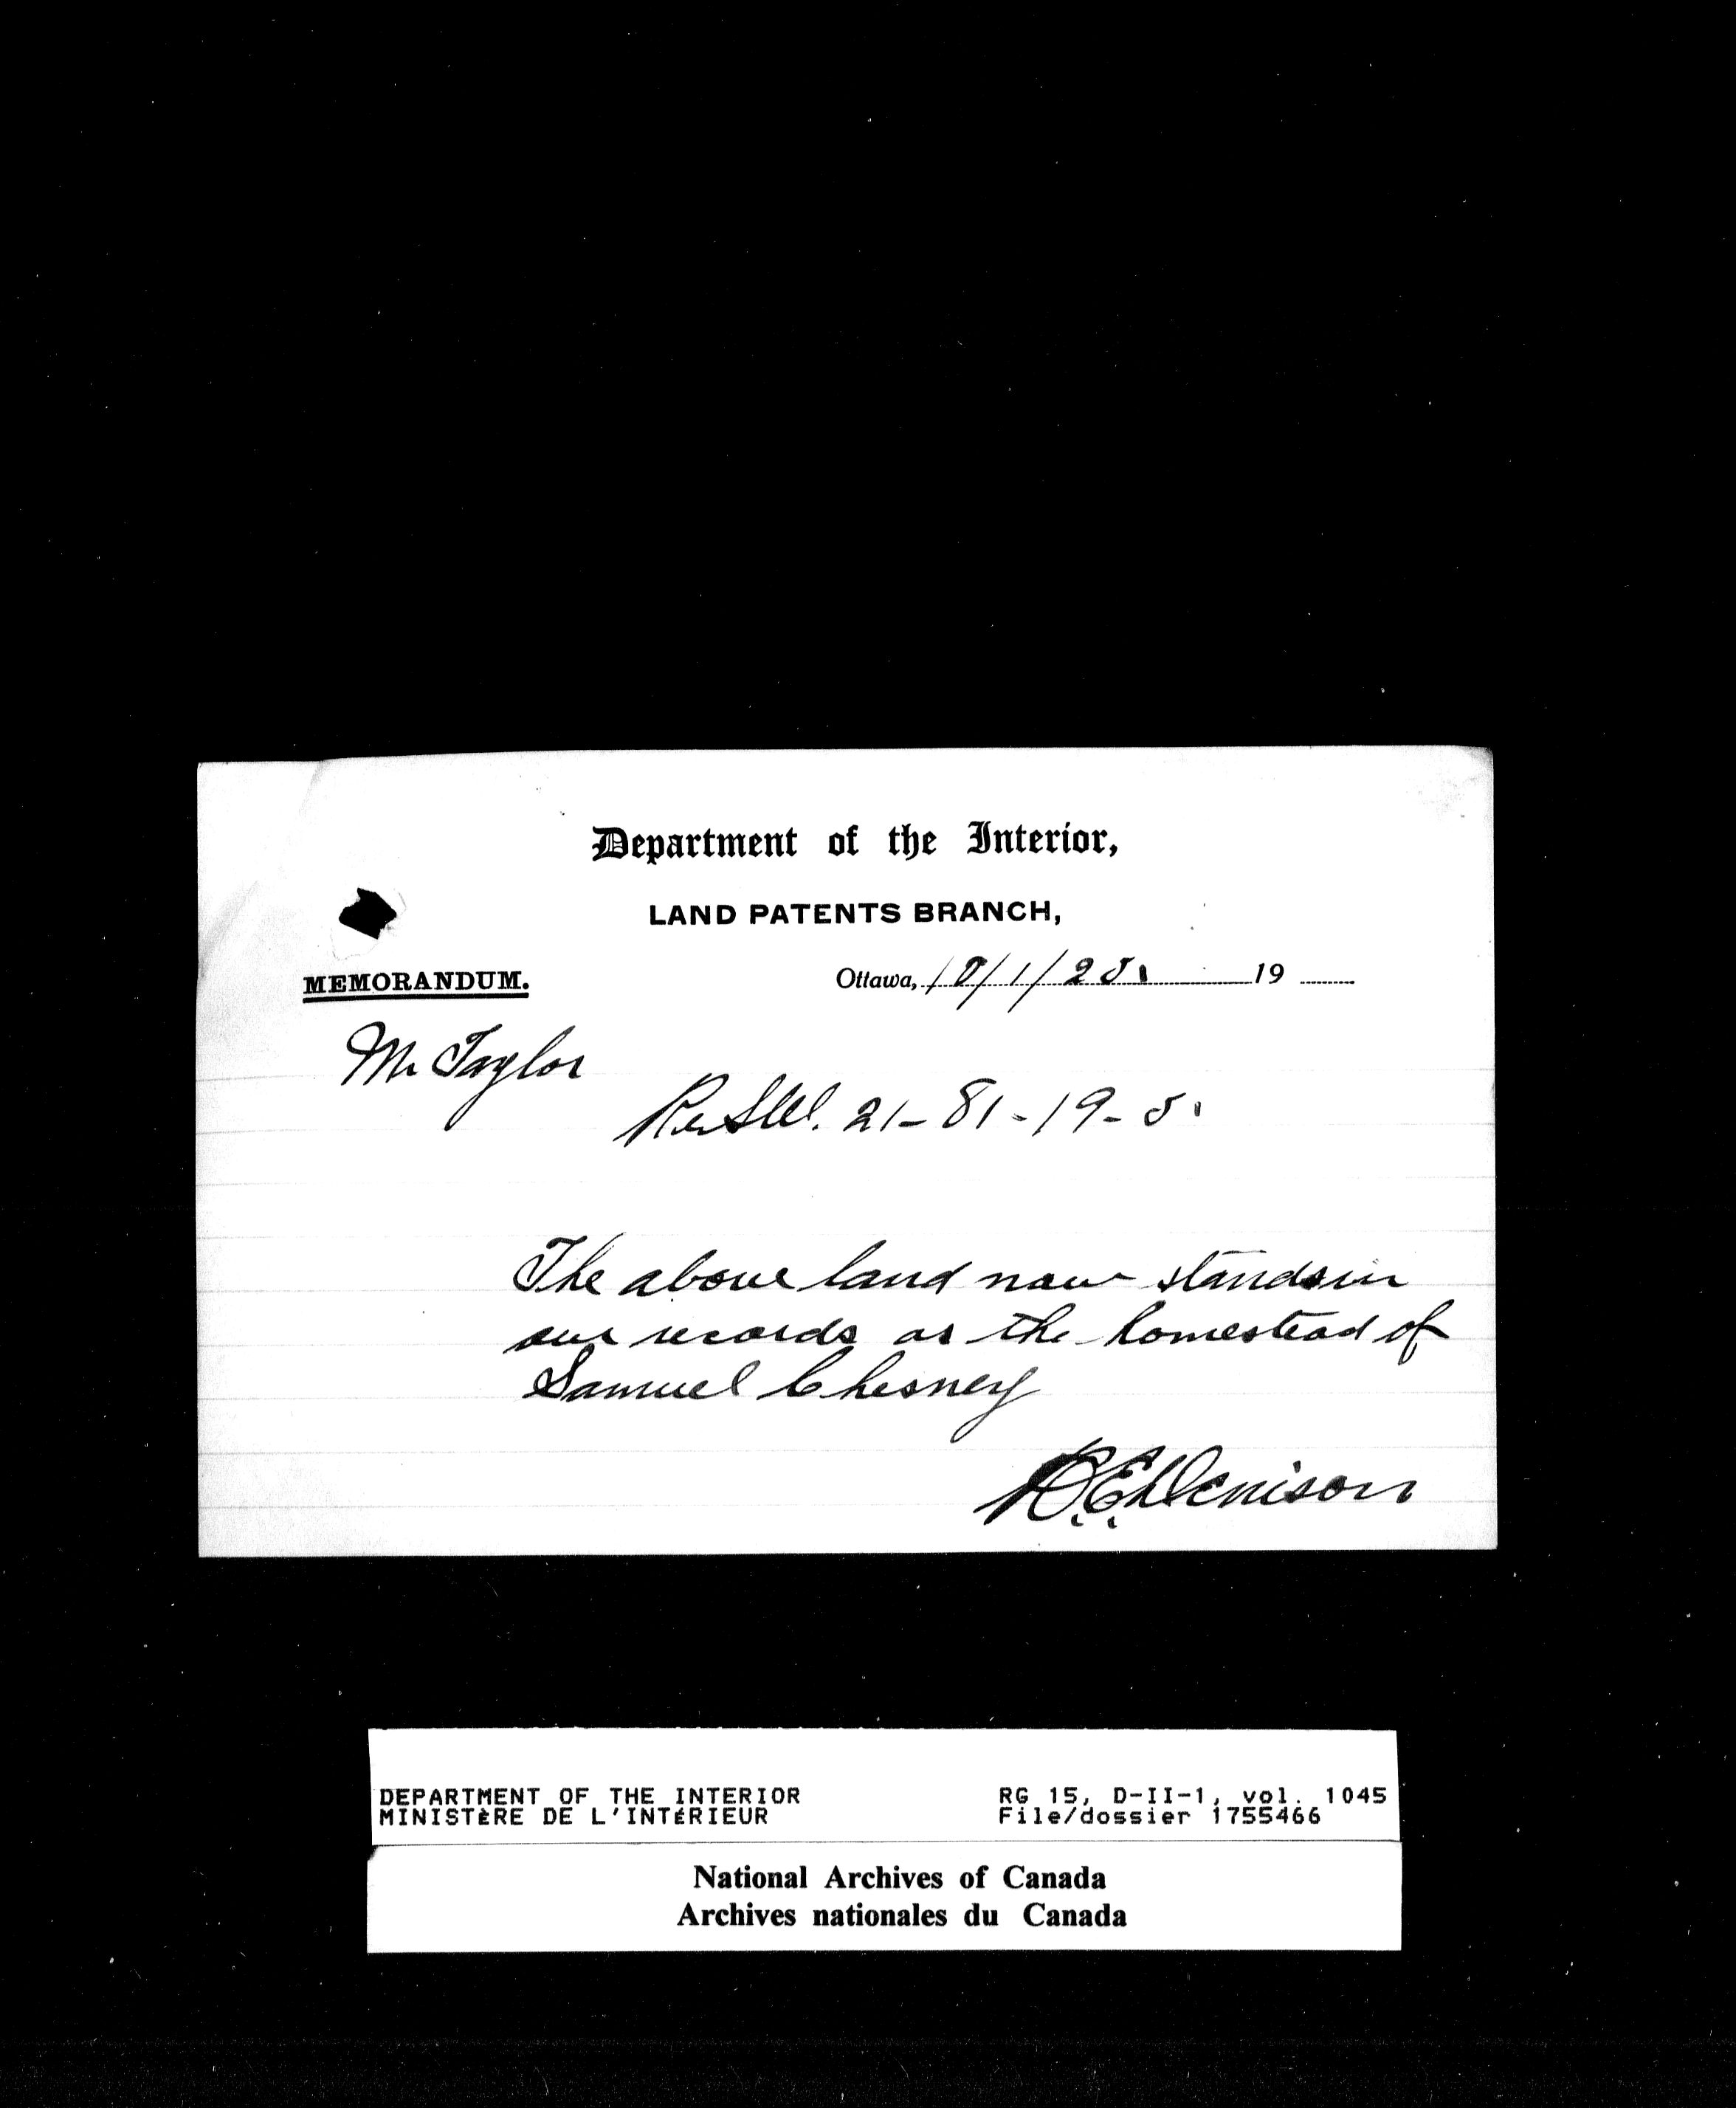 Department of the Interior,
LAND PATENTS BRANCH,
MEMORANDUM.
Ottawa, 19
Mr Taylor
Re SW. 21-81-19-5.
The above land now stands in
our records as the homestead of
Samuel Chesney
Denison
DEPARTMENT OF THE INTERIOR
MINISTÈRE DE L'INTÉRIEUR
RG 15, D-II-1, vol. 1045
File/dossier 1755466
National Archives of Canada
Archives nationales du Canada